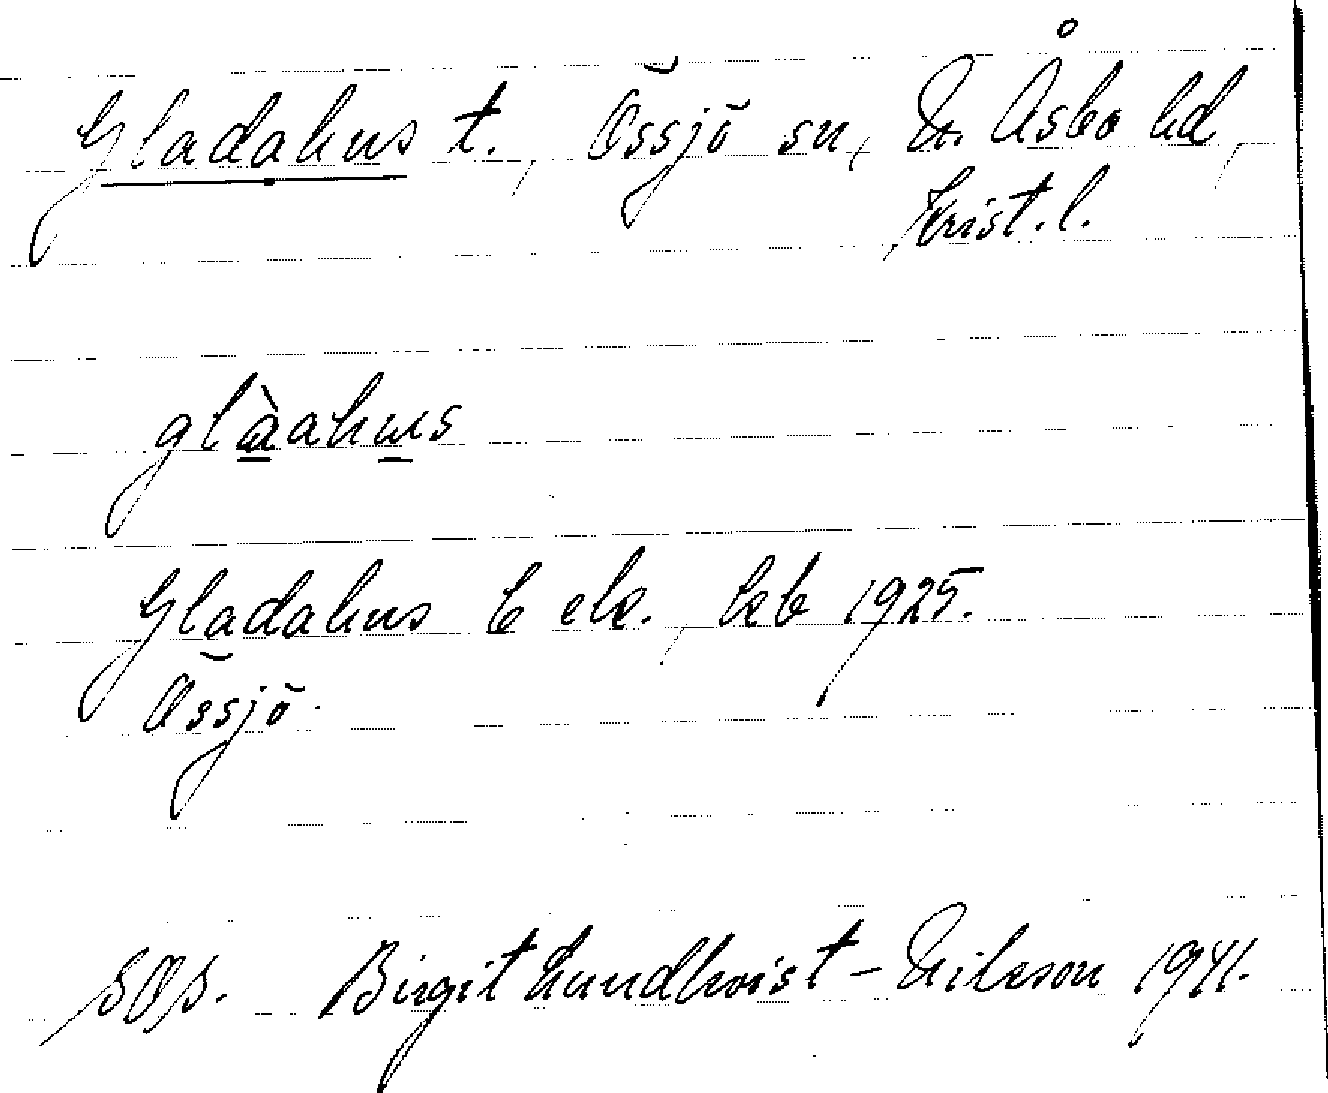 Gladahus t., Össjö sn, N. Åsbo hd,
Krist. l.
glàahus
Gladahus C ek., kb 1925.
Össjö.
SOS. Birgit Lundkvist-Nilsson 1941.